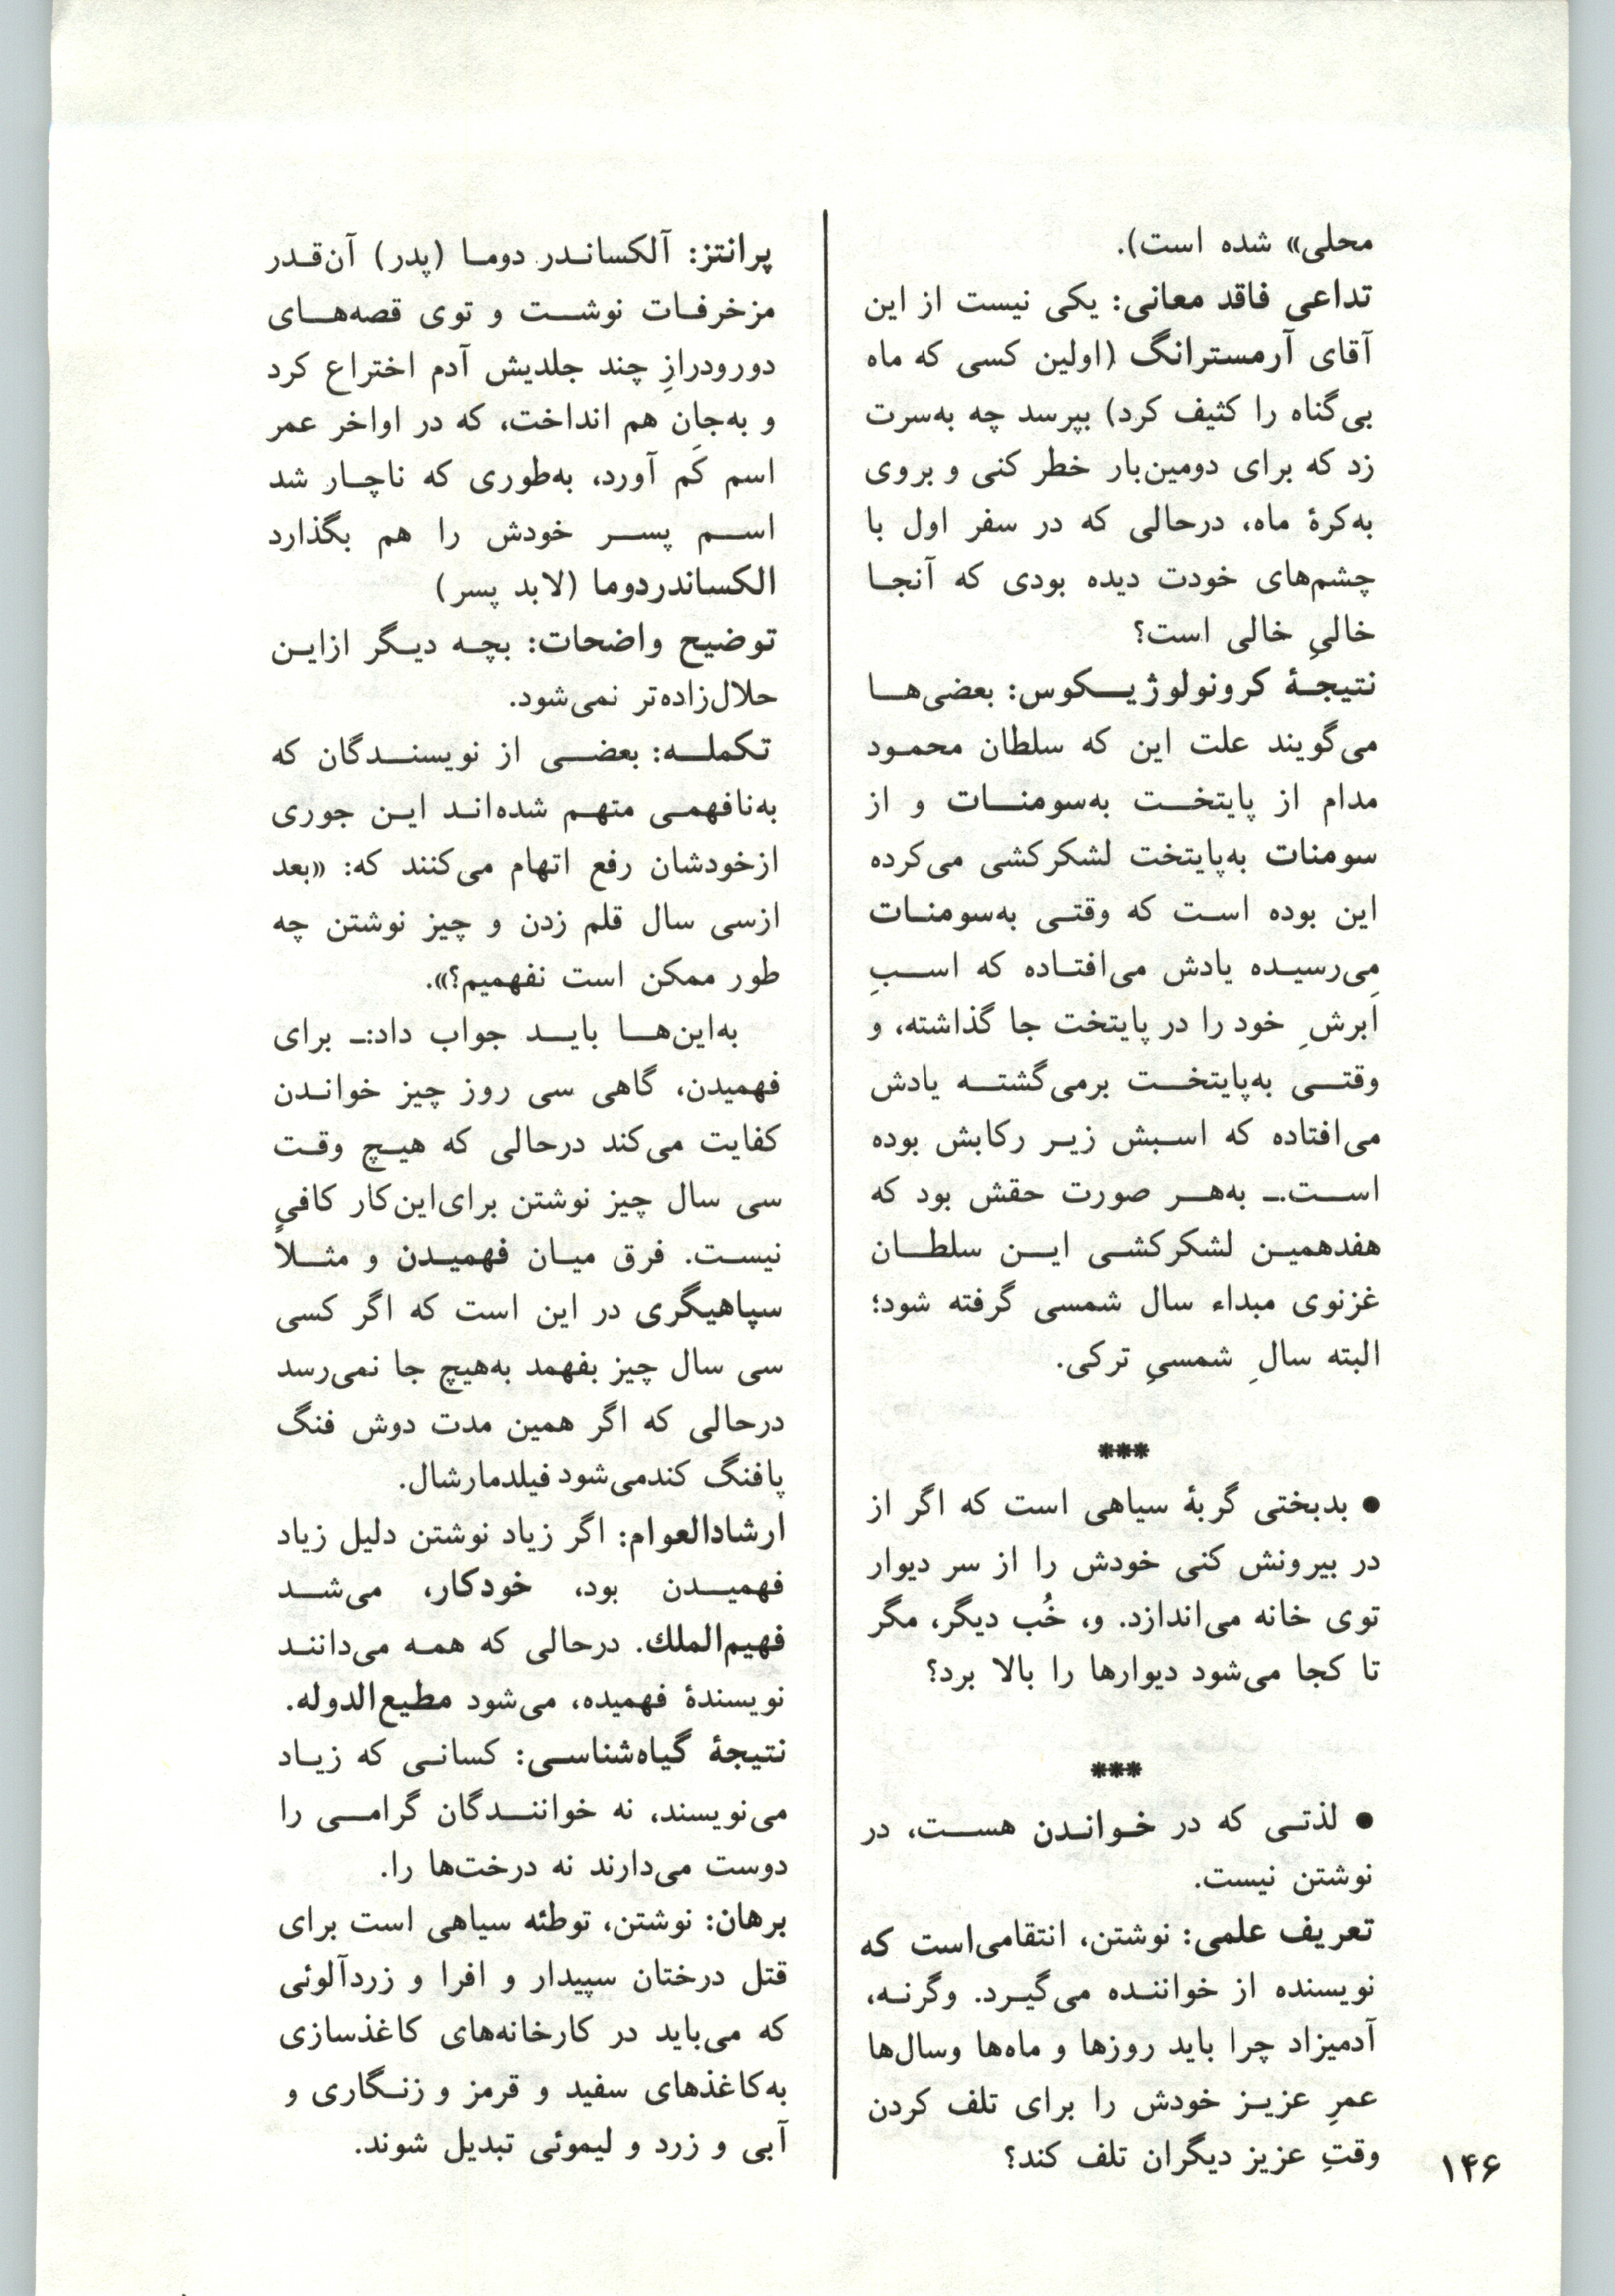 محلی» شده است).
تداعی فاقد معانی: یکی نیست از این
آقای آرمسترانگ (اولین کسی که ماه
بی‌گناه را کثیف کرد) بپرسد چه به‌سرت
زد که برای دومین‌بار خطر کنی و بروی
به‌کرهٔ ماه، درحالی که در سفر اول با
چشم‌های خودت دیده بودی که آنجا
خالیِ خالی است؟
نتیجهٔ کرونولوژیکوس: بعضی‌ها
می‌گویند علت این که سلطان محمود
مدام از پایتخت به‌سومنات و از
سومنات به‌پایتخت لشکرکشی می‌کرده
این بوده است که وقتی به‌سومنات
می‌رسیده یادش می‌افتاده که اسبِ
اَبرشِ خود را در پایتخت جا گذاشته، و
وقتی به‌پایتخت برمی‌گشته یادش
می‌افتاده که اسبش زیر رکابش بوده
است.ــ به‌هر صورت حقش بود که
هفدهمین لشکرکشی این سلطان
غزنوی مبداء سال شمسی گرفته شود؛
البته سالِ شمسیِ ترکی.
***
● بدبختی گربهٔ سیاهی است که اگر از
در بیرونش کنی خودش را از سر دیوار
توی خانه می‌اندازد. و، خُب دیگر، مگر
تا کجا می‌شود دیوارها را بالا برد؟
***
● لذتی که در خواندن هست، در
نوشتن نیست.
تعریف علمی: نوشتن، انتقامی‌است که
نویسنده از خواننده می‌گیرد. وگرنه،
آدمیزاد چرا باید روزها و ماه‌ها وسال‌ها
عمرِ عزیز خودش را برای تلف کردن
وقتِ عزیز دیگران تلف کند؟
پرانتز: آلکساندر دوما (پدر) آن‌قدر
مزخرفات نوشت و توی قصه‌های
دورودرازِ چند جلدیش آدم اختراع کرد
و به‌جان هم انداخت، که در اواخر عمر
اسم کَم آورد، به‌طوری که ناچار شد
اسم پسر خودش را هم بگذارد
الکساندردوما (لابد پسر)
توضیح واضحات: بچه دیگر ازاین
حلال‌زاده‌تر نمی‌شود.
تکمله: بعضی از نویسندگان که
به‌نافهمی متهم شده‌اند این جوری
ازخودشان رفع اتهام می‌کنند که: «بعد
ازسی سال قلم زدن و چیز نوشتن چه
طور ممکن است نفهمیم؟».
به‌این‌ها باید جواب داد:ــ برای
فهمیدن، گاهی سی روز چیز خواندن
کفایت می‌کند درحالی که هیچ وقت
سی سال چیز نوشتن برای‌این‌کار کافی
نیست. فرق میان فهمیدن و مثلاً
سپاهیگری در این است که اگر کسی
سی سال چیز بفهمد به‌هیچ جا نمی‌رسد
درحالی که اگر همین مدت دوش فنگ
پافنگ کندمی‌شود فیلدمارشال.
ارشادالعوام: اگر زیاد نوشتن دلیل زیاد
فهمیدن بود، خودکار، می‌شد
فهیم‌الملك. درحالی که همه می‌دانند
نویسندهٔ فهمیده، می‌شود مطیع‌الدوله.
نتیجهٔ گیاه‌شناسی: کسانی که زیاد
می‌نویسند، نه خوانندگان گرامی را
دوست می‌دارند نه درخت‌ها را.
برهان: نوشتن، توطئه سیاهی است برای
قتل درختان سپیدار و افرا و زردآلوئی
که می‌باید در کارخانه‌های کاغذسازی
به‌کاغذهای سفید و قرمز و زنگاری و
آبی و زرد و لیموئی تبدیل شوند.
۱۴۶